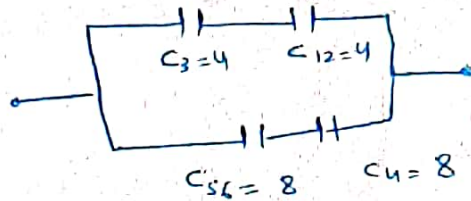 C₃=4 C₁₂=4
C₅₆= 8 C₄= 8